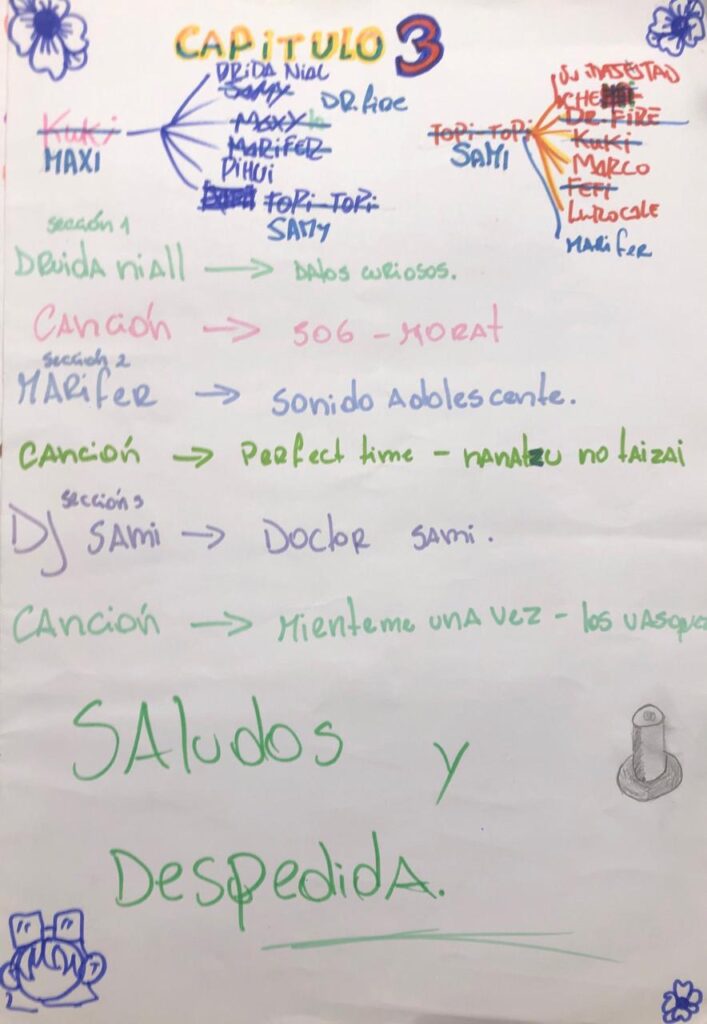 CAPITULO 3
DRiDA NiAL
SAMY
DR.fiRE
Kuki
MAXI
MAXY
MARiFER
PiHUi
TOPi-TOPi
SAMY
TOPi-TOPi
SAMI
DR. FiRE
Kuki
MARCO
FEFi
MARifeR
sección 1
DRuiDA niAll → DAtos curiosos.
CAnción → 506 - MORAT
sección 2
MARifeR → Sonido Adolescente.
CAnción → Perfect time - nanatzu no taizai
sección 3
DJ SAmi → Doctor Sami.
CAnción → Mienteme unA vez - los vasque
SAludos y
DespedidA.